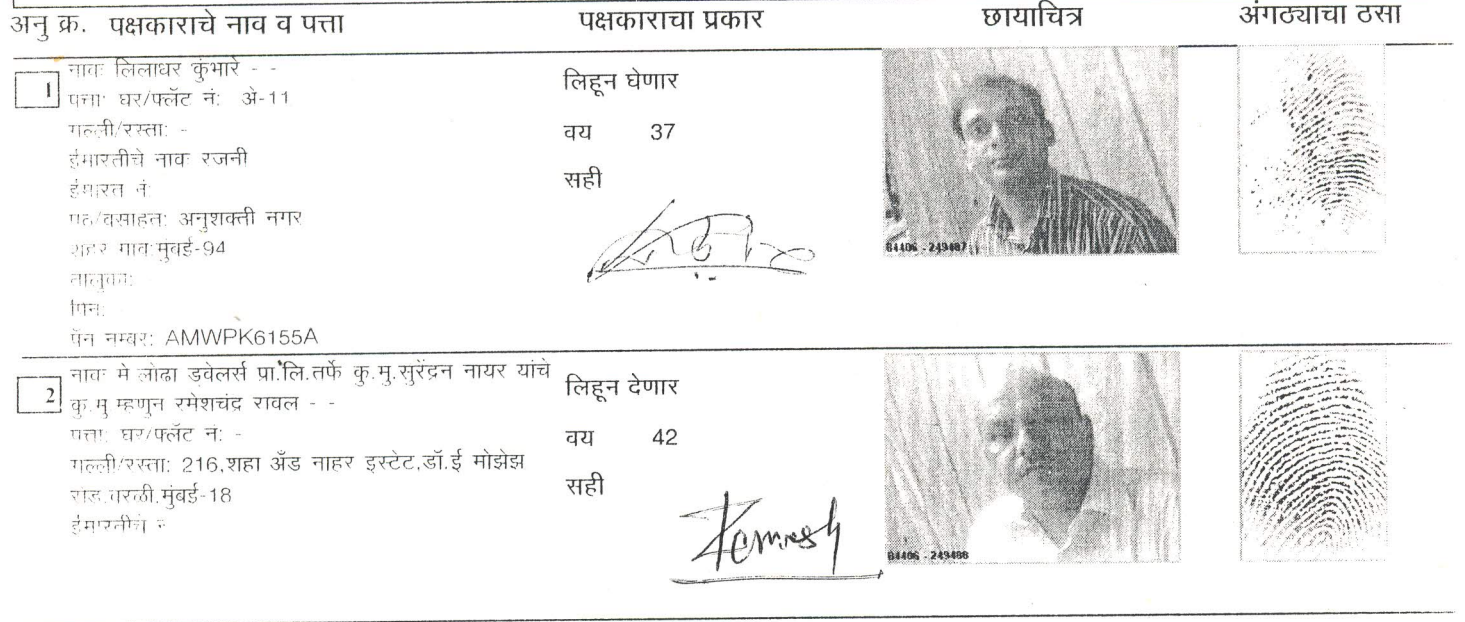 अनु क्र. पक्षकाराचे नाव व पत्ता पक्षकाराचा प्रकार छायाचित्र अंगठ्याचा ठसा
1 नावः लिलाधर कुंभारे - - लिहून घेणार
पत्ताः घर/फ्लॅट नंः अे-11
गल्ली/रस्ताः - वय 37
ईमारतीचे नावः रजनी
ईमारत नंः सही
पेठ/वसाहतः अनुशक्ती नगर
शहर/गावःमुंबई-94
तालुकाः
पिनः
पॅन नम्बरः AMWPK6155A
84406 - 249487
2 नावः मे लोढा डवेलर्स प्रा.लि.तर्फे कु.मु.सुरेंद्रन नायर यांचे लिहून देणार
कु.मु म्हणुन रमेशचंद्र रावल - -
पत्ताः घर/फ्लॅट नंः - वय 42
गल्ली/रस्ताः 216,शहा अँड नाहर इस्टेट,डॉ.ई मोझेझ
रोड,वरळी,मुंबई-18 सही
ईमारतीचे न
84406 - 249488